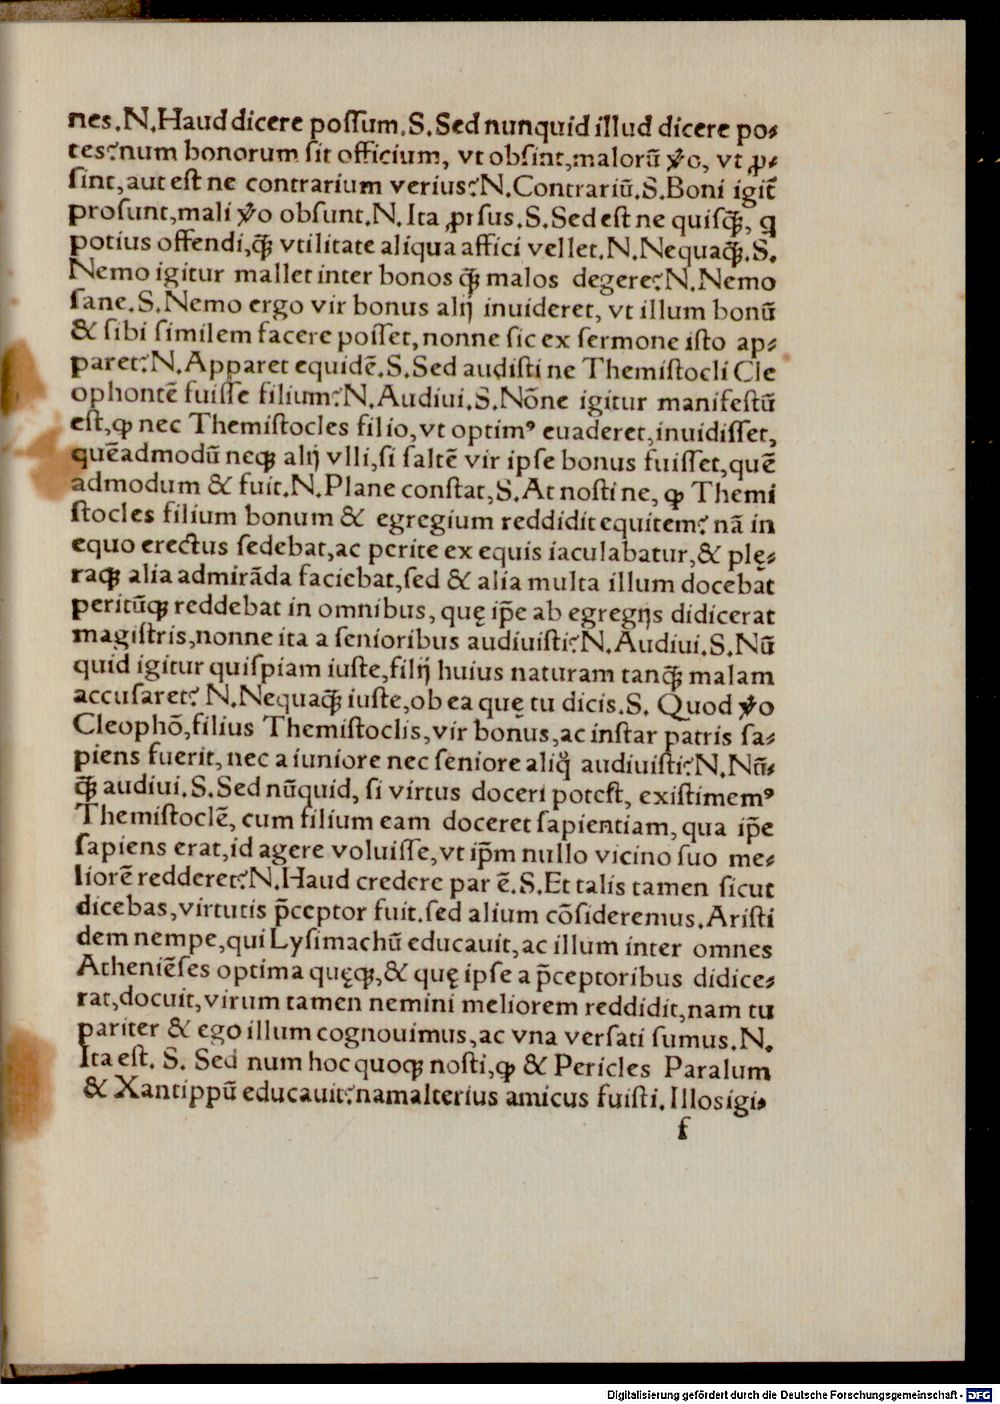 nes.N.Haud dicere poſſum.S.Sed nunquid illud dicere po⸗
tes?num bonorum ſit officium, vt obſint,malorū ꝟo, vt ꝓ⸗
ſint,aut eſt ne contrarium verius?N.Contrariū.S.Boni igit̄
proſunt,mali ꝟo obſunt.N.Ita ꝓrſus.S.Sed eſt ne quiſq̄ꝫ, q
potius offendi,q̄ꝫ vtilitate aliqua affici vellet.N.Nequaq̄ꝫ.S.
Nemo igitur mallet inter bonos q̄ꝫ malos degere?N.Nemo
ſane.S.Nemo ergo vir bonus alij inuideret, vt illum bonū
& ſibi ſimilem facere poſſet,nonne ſic ex ſermone iſto ap⸗
paret?N.Apparet equidē.S.Sed audiſti ne Themiſtocli Cle
ophontē fuiſſe filium?N.Audiui.S.Nōne igitur manifeſtū
eſt,ꝙ nec Themiſtocles filio,vt optimꝰ euaderet,inuidiſſet,
quēadmodū neqꝫ alij vlli,ſi ſaltē vir ipſe bonus fuiſſet,quē
admodum & fuit.N.Plane conſtat,S.At noſti ne, ꝙ Themi
ſtocles filium bonum & egregium reddidit equitem? nā in
equo erectus ſedebat,ac perite ex equis iaculabatur,& plę⸗
raqꝫ alia admirāda faciebat,ſed & alia multa illum docebat
peritūqꝫ reddebat in omnibus, quę ip̄e ab egregijs didicerat
magiſtris,nonne ita a ſenioribus audiuiſti?N.Audiui.S.Nū
quid igitur quiſpiam iuſte,filij huius naturam tanq̄ꝫ malam
accuſaret? N.Nequaq̄ꝫ iuſte,ob ea quę tu dicis.S. Quod ꝟo
Cleophō,filius Themiſtoclis,vir bonus,ac inſtar patris ſa⸗
piens fuerit, nec a iuniore nec ſeniore aliq̄ audiuiſti?N.Nū⸗
q̄ꝫ audiui.S.Sed nūquid, ſi virtus doceri poteſt, exiſtimemꝰ
Themiſtoclē, cum filium eam doceret ſapientiam, qua ip̄e
ſapiens erat,id agere voluiſſe,vt ip̄m nullo vicino ſuo me⸗
liorē redderet?N.Haud credere par ē.S.Et talis tamen ſicut
dicebas,virtutis p̄ceptor fuit.ſed alium cōſideremus.Ariſti
dem nempe,qui Lyſimachū educauit,ac illum inter omnes
Atheniēſes optima quęqꝫ,& quę ipſe a p̄ceptoribus didice⸗
rat,docuit,virum tamen nemini meliorem reddidit,nam tu
pariter & ego illum cognouimus,ac vna verſati ſumus.N.
Ita eſt. S. Sed num hoc quoqꝫ noſti,ꝙ & Pericles Paralum
& Xantippū educauit?nam alterius amicus fuiſti.Illos igi⸗
f
Digitalisierung gefördert durch die Deutsche Forschungsgemeinschaft - DFG